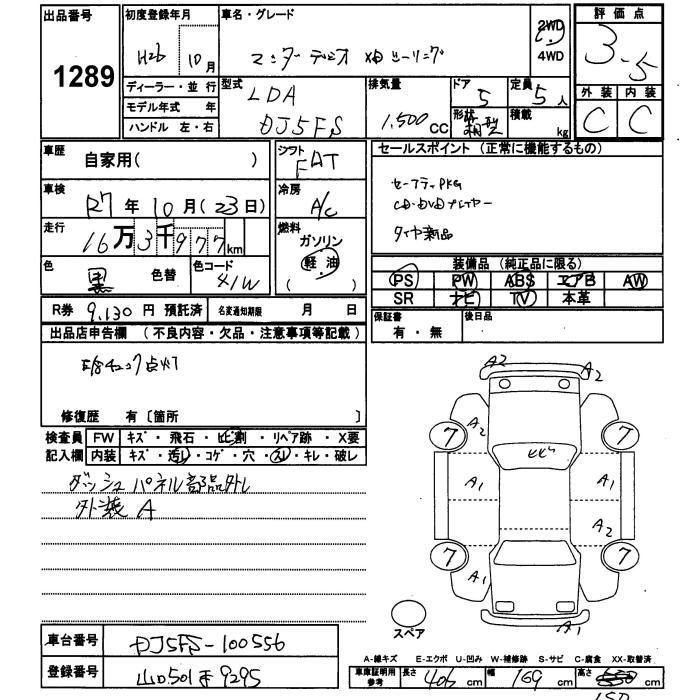 出品番号 初度登録年月 車名・グレード 2WD 評価点
1289 H26年10月 4WD 3.5
ディーラー・並行 型式 排気量 ドア 定員 外装 内装
モデル年式 年 LDA 1,500CC 5 5人 C C
ハンドル 左・右 DJ5FS 形状 箱型 積載 kg
車歴 自家用( ) シフト FAT セールスポイント(正常に機能するもの)
車検 R7年10月(23日) 冷房 A/C セーフティPKG
CD・DVDプレイヤー
走行 16万3千977km 燃料 ガソリン タイヤ新品
軽油
色 黒 色替 色コード 41W ( ) 装備品(純正品に限る)
PS PW ABS エアB AW
SR ナビ TV 本革
R券 9,130円 預託済 名変通知期限 月 日 保証書 有・無 後日品
出品店申告欄 (不良内容・欠品・注意事項等記載)
点灯
修復歴 有〔箇所 〕
検査員 FW キズ・飛石・ヒビ割・リペア跡・X要
記入欄 内装 キズ・汚レ・コゲ・穴・スレ・キレ・破レ
ダッシュパネル部品外し
外装 A
A2 A2
7 A2 7
ヒビ
A1 A1
A2
7 7
A1
A1
スペア
車台番号 DJ5FS-100556
A-線キズ E-エクボ U-凹み W-補修跡 S-サビ C-腐食 XX-取替済
登録番号 山口501 9295
車庫証明用参考 長さ 406cm 幅 169cm 高さ cm
150